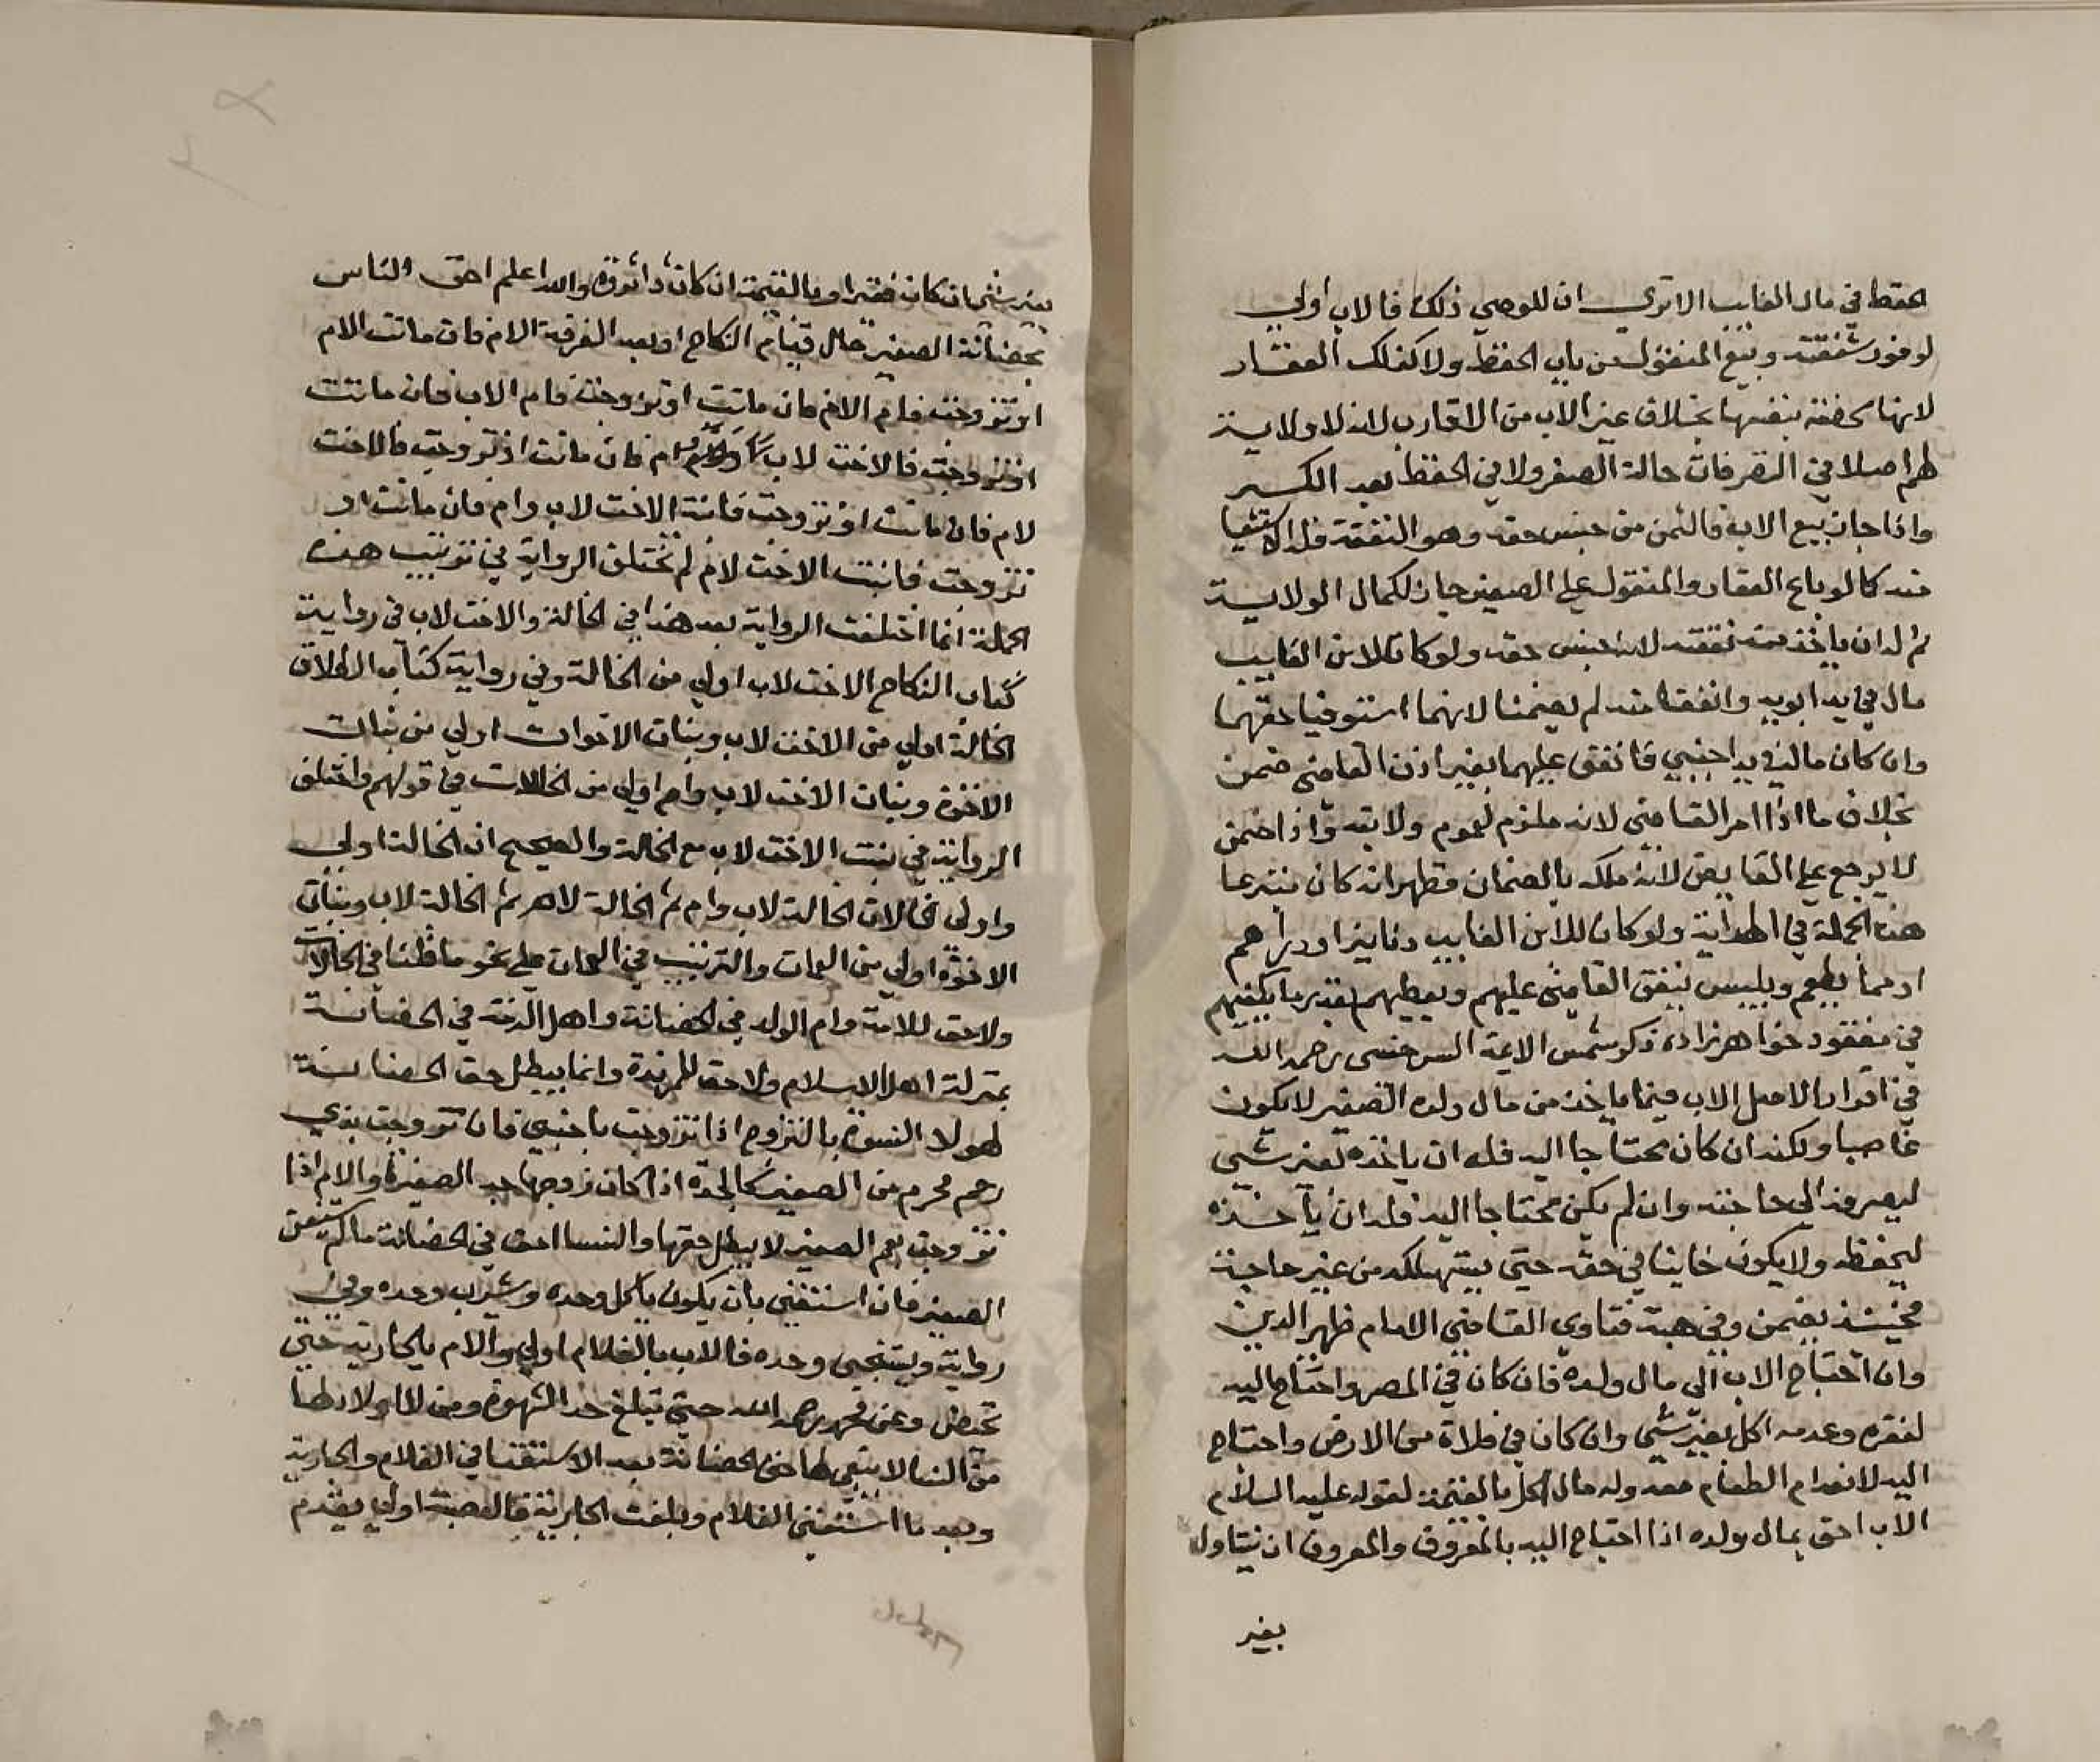 الحفظ في مال الغايب الا تري ان للوصي ذلك فالاب اولي
لوفور شفقته وبيع المنقول من باب الحفظ ولا كذلك العقار
لانها محفظة بنفسها بخلاف غير الاب من الاقارب لانه لا ولاية
لهم اصلا في التصرفات حالة الصغر ولا في الحفظ بعد الكبر
واذا جاز بيع الاب فالثمن من جنس حقه وهو النفقة فله الاستيفا
منه كما لو باع العقار والمنقول علي الصغير جاز لكمال الولاية
ثم له ان ياخذ منه نفقته لانه جنس حقه ولو كان للابن الغايب
مال في يد ابويه وانفقا منه لم يضمنا لانهما استوفيا حقهما
وان كان ماله في يد اجنبي فانفق عليهما بغير اذن القاضي ضمن
بخلاف ما اذا امر القاضي لانه ملزم لعموم ولايته واذا ضمن
لا يرجع علي القابض لانه ملكه بالضمان فظهر انه كان متبرعا
هذه الجملة في الهداية ولو كان للابن الغايب دنانير او دراهم
او مما يطعم ويلبس ينفق القاضي عليهم ويعطيهم بقدر ما يكفيهم
في مفقود خواهر زاده ذكر شمس الايمة السرخسي رحمه الله
في اقرار الاصل الاب فيما ياخذ من مال ولده الصغير لا يكون
غاصبا ولكنه ان كان محتاجا اليه فله ان ياخذه بغير شي
ليصرفه الي حاجته وان لم يكن محتاجا اليه فله ان ياخذه
ليحفظه ولا يكون خاينا في حقه حتي يستهلكه من غير حاجة
فحينئذ يضمن وفي هبة فتاوي القاضي الامام ظهير الدين
وان احتاج الاب الي مال ولده فان كان في المصر واحتاج اليه
لفقره وعدمه اكل بغير شي وان كان في فلاة من الارض واحتاج
اليه لانعدام الطعام معه وله مال اكل بالقيمة لقوله عليه السلام
الاب احق بمال ولده اذا احتاج اليه بالمعروف والمعروف ان يتناوله
بغير
بغير شي ان كان فقيرا وبالقيمة ان كان ذا ثروة والله اعلم احق الناس
بحضانة الصغير حال قيام النكاح او بعد الفرقة الام فان ماتت الام
او تزوجت فام الام فان ماتت او تزوجت فام الاب فان ماتت
او تزوجت فالاخت لاب وام فان ماتت او تزوجت فالاخت
لام فان ماتت او تزوجت فابنة الاخت لاب وام فان ماتت او
تزوجت فابنت الاخت لام لم تختلف الرواية في ترتيب هذه
الجملة انما اختلفت الرواية بعد هذا في الخالة والاخت لاب في رواية
كتاب النكاح الاخت لاب اولي من الخالة وفي رواية كتاب الطلاق
الخالة اولي من الاخت لاب وبنات الاخوات اولي من بنات
الاخوة وبنات الاخت لاب وام اولي من الخالات في قولهم واختلف
الرواية في بنت الاخت لاب مع الخالة والصحيح ان الخالة اولي
واولي الخالات الخالة لاب وام ثم الخالة لام ثم الخالة لاب وبنات
الاخوة اولي من العمات والترتيب في العمات علي نحو ما قلنا في الخالات
ولا حق للامة وام الولد في الحضانة واهل الذمة في الحضانة
بمنزلة اهل الاسلام ولا حق للمرتدة وانما يبطل حق الحضانة
لهولا النسوة بالتزوج اذا تزوجت باجنبي فان تزوجت بذي
رحم محرم من الصغير كالجدة اذا كان زوجها جد الصغيرة والام اذا
تزوجت بعم الصغير لا يبطل حقها والنسا احق في الحضانة ما لم يستغن
الصغير فان استغني بان يكون ياكل وحده ويشرب وحده وفي
رواية ويستنجي وحده فالاب بالغلام اولي والام بالجارية حتي
تحيض وعن محمد رحمه الله حتي تبلغ حد الشهوة ومن لا ولاد لها
من النسا لا يبقي لها حق الحضانة بعد الاستغنا في الغلام والجارية
وبعد ما استغني الغلام وبلغت الجارية فالعصبة اولي يقدم